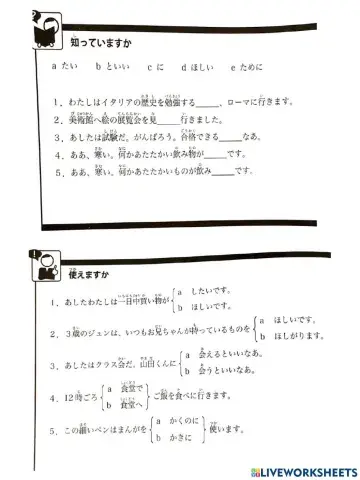 知っていますか
a たい b といい c に d ほしい e ために
1. わたしはイタリアの歴史を勉強する_____、ローマに行きます。
2. 美術館へ絵の展覧会を見_____行きました。
3. あしたは試験だ。がんばろう。合格できる_____なあ。
4. ああ、寒い。何かあたたかい飲み物が_____です。
5. ああ、寒い。何かあたたかいものが飲み_____です。
1
使えますか
1. あしたわたしは一日中買い物が { a したいです。
b ほしいです。
2. 3歳のジュンは、いつもお兄ちゃんが持っているものを { a ほしいです。
b ほしがります。
3. あしたはクラス会だ。山田くんに { a 会えるといいなあ。
b 会うといいなあ。
4. 12時ごろ { a 食堂で
b 食堂へ } ご飯を食べに行きます。
5. この細いペンはまんがを { a かくのに
b かきに } 使います。
LIVEWORKSHEETS